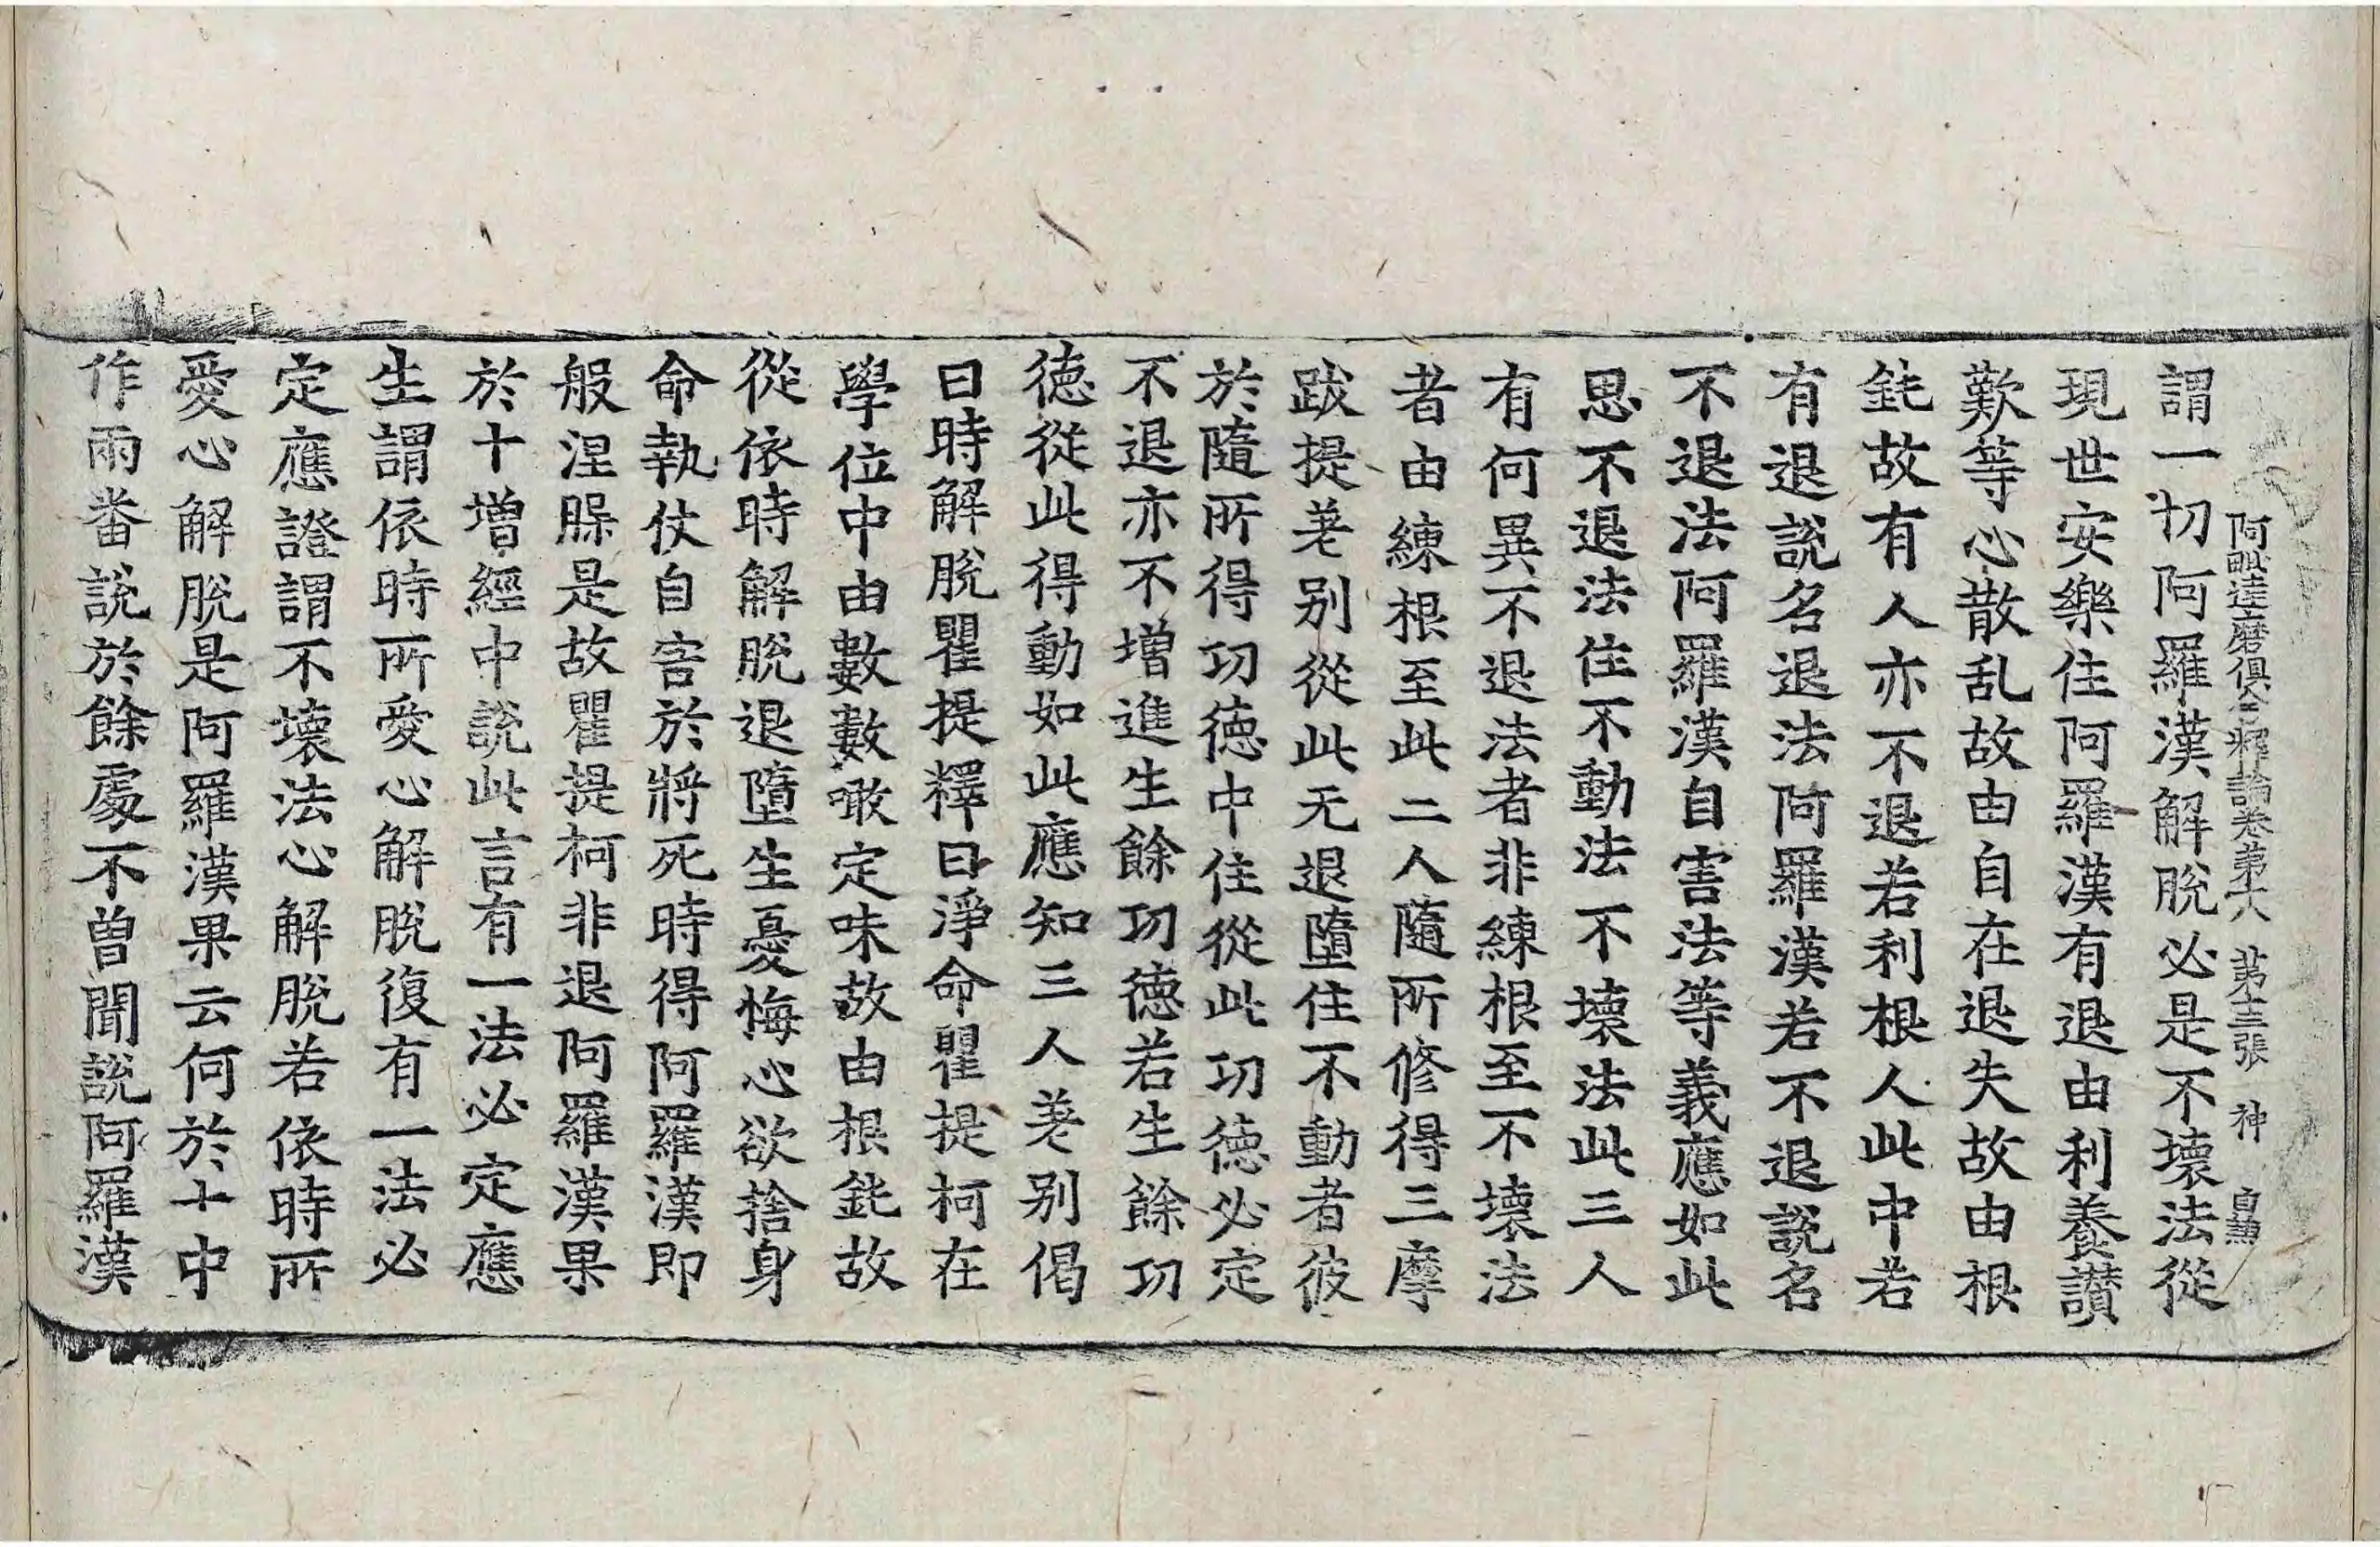 阿毗達磨俱舍釋論卷第十八 第十三張 神 自兼
謂一切阿羅漢解脫必是不壞法從
現世安樂住阿羅漢有退由利養讃
歎等心散乱故由自在退失故由根
鈍故有人亦不退若利根人此中若
有退說名退法阿羅漢若不退說名
不退法阿羅漢自害法等義應如此
思不退法住不動法不壞法此三人
有何異不退法者非練根至不壞法
者由練根至此二人隨所修得三摩
跋提差别從此无退墮住不動者彼
於隨所得功徳中住從此功徳必定
不退亦不增進生餘功徳若生餘功
徳從此得動如此應知三人差别偈
曰時解脫瞿提釋曰淨命瞿提柯在
學位中由數數噉定味故由根鈍故
從依時解脫退墮生憂悔心欲捨身
命執仗自害於將死時得阿羅漢即
般涅槃是故瞿提柯非退阿羅漢果
於十增經中説此言有一法必定應
生謂依時所愛心解脫復有一法必
定應證謂不壞法心解脫若依時所
愛心解脫是阿羅漢果云何於十中
作兩番説於餘處不曽聞説阿羅漢